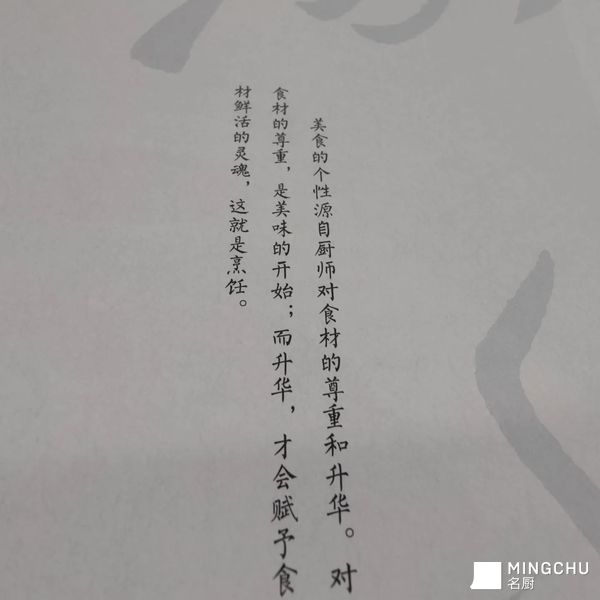 美食的个性源自厨师对食材的尊重和升华。对
食材的尊重，是美味的开始；而升华，才会赋予食
材鲜活的灵魂，这就是烹饪。
MINGCHU
名厨